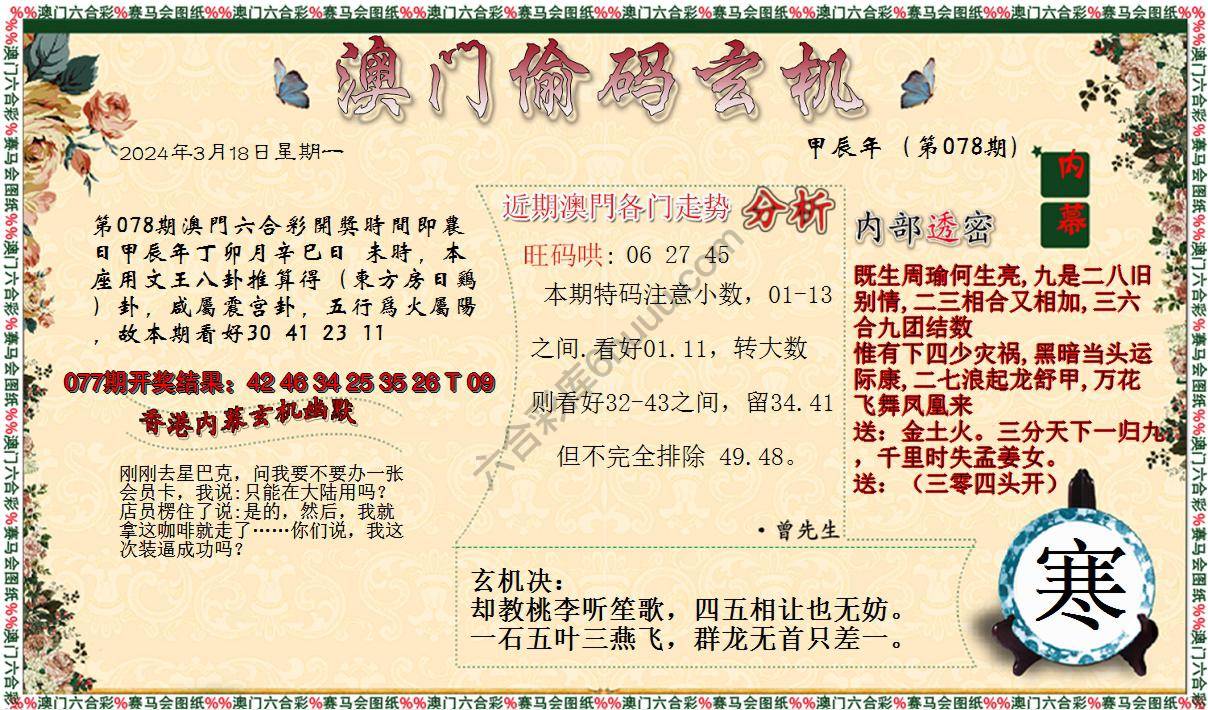 %%澳门六合彩%赛马会图纸%%澳门六合彩%赛马会图纸%%澳门六合彩%赛马会图纸%%澳门六合彩%赛马会图纸%%澳门六合彩%赛马会图纸%%澳门六合彩%赛马会图纸%%
澳门偷码玄机
2024年3月18日星期一
甲辰年（第078期）
内幕
第078期澳門六合彩開獎時間即農
日甲辰年丁卯月辛巳日 未時，本
座用文王八卦推算得（東方房日鷄
）卦，咸屬震宫卦，五行爲火屬陽
，故本期看好30 41 23 11
077期开奖结果：42 46 34 25 35 26 T 09
香港内幕玄机幽默
刚刚去星巴克，问我要不要办一张
会员卡，我说:只能在大陆用吗？
店员楞住了说:是的，然后，我就
拿这咖啡就走了……你们说，我这
次装逼成功吗？
近期澳門各门走势 分析
旺码哄: 06 27 45
本期特码注意小数，01-13
之间.看好01.11，转大数
则看好32-43之间，留34.41
但不完全排除 49.48。
·曾先生
内部透密
既生周瑜何生亮,九是二八旧
别情,二三相合又相加,三六
合九团结数
惟有下四少灾祸,黑暗当头运
际康,二七浪起龙舒甲,万花
飞舞凤凰来
送：金土火。三分天下一归九
，千里时失孟姜女。
送：（三零四头开）
玄机决：
却教桃李听笙歌，四五相让也无妨。
一石五叶三燕飞，群龙无首只差一。
寒